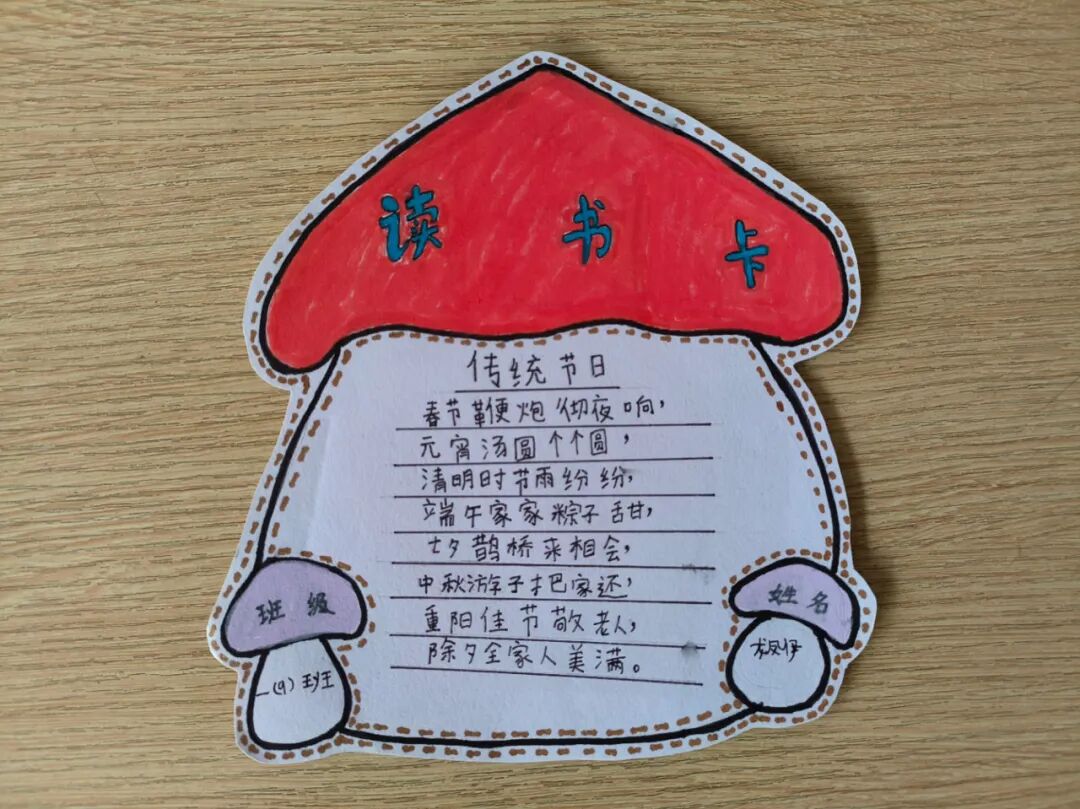 读书卡
传统节日
春节鞭炮彻夜响，
元宵汤圆个个圆，
清明时节雨纷纷，
端午家家粽子甜，
七夕鹊桥来相会，
中秋游子把家还，
重阳佳节敬老人，
除夕全家人美满。
班级
一(9)班
姓名